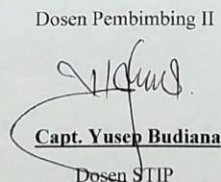 Dosen Pembimbing II
Capt. Yusep Budiana
Dosen STIP